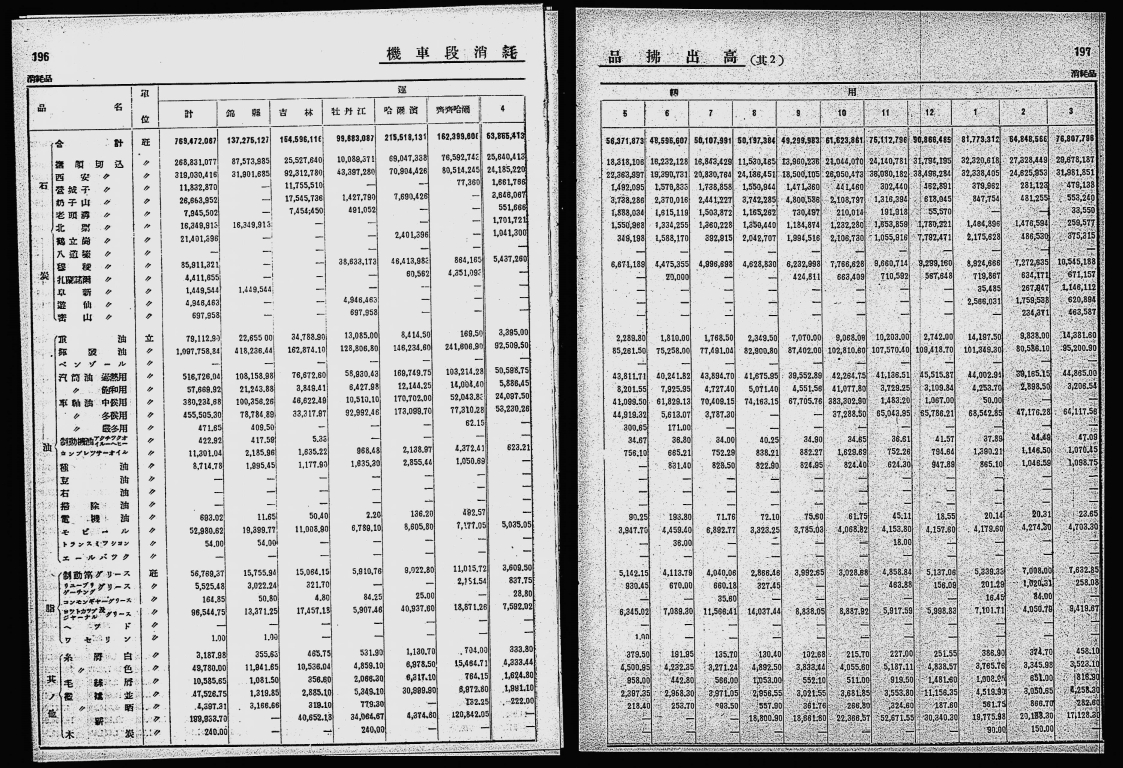 196
機車段消耗
消耗品
品 名 單位 運
計 錦縣 吉林 牡丹江 哈爾濱 齊齊哈爾 4
合計 瓩 769,472,067 137,275,127 154,596,116 99,683,087 215,518,131 162,399,606 53,865,413
〃 268,831,077 87,573,985 25,527,640 10,089,371 69,047,338 76,592,743 25,640,413
西安〃 〃 319,030,416 31,901,685 92,312,780 43,397,280 70,904,426 80,514,245 24,185,220
〃 11,832,870 — 11,755,510 — — 77,360 1,661,766
奶子山〃 〃 26,663,952 — 17,545,736 1,427,790 7,690,426 — 3,646,067
老頭溝〃 〃 7,945,502 — 7,454,450 491,052 — — 551,666
北票〃 〃 16,349,913 16,349,913 — — — — 1,701,721
鶴立崗〃 〃 21,401,396 — — — 2,401,396 — 1,041,300
八道壕〃 〃 — — — — — — —
穆稜〃 〃 85,911,321 — — 38,633,173 46,413,983 864,165 5,437,260
〃 4,411,655 — — — 60,562 4,351,093 —
阜新〃 〃 1,449,544 1,449,544 — — — — —
〃 4,946,463 — — 4,946,463 — — —
密山〃 〃 697,958 — — 697,958 — — —
石炭
重油 立 79,112.90 22,655.00 34,788.90 13,085.00 8,414.50 169.50 3,395.00
〃 1,097,758.84 418,236.44 162,874.10 128,806.80 146,234.60 241,606.90 92,509.50
ベンゾール 〃 — — — — — — —
汽筒油 過熱用 〃 516,726.04 108,158.98 76,672.60 58,930.43 169,749.75 103,214.28 50,596.75
〃 飽和用 〃 57,669.92 21,243.88 3,849.41 6,427.98 12,144.25 14,004.40 5,886.45
車軸油 中候用 〃 380,234.68 100,356.26 46,622.49 10,510.10 170,702.00 52,043.83 24,097.50
〃 冬候用 〃 455,505.30 78,784.89 33,317.97 92,992.46 173,099.70 77,310.28 53,230.26
〃 嚴冬用 〃 471.65 409.50 — — — 62.15 —
〃 422.92 417.59 5.33 — — — —
コンプレツサーオイル 〃 11,301.04 2,185.96 1,635.22 968.48 2,138.97 4,372.41 623.21
種油 〃 8,714.78 1,995.45 1,177.90 1,635.30 2,855.44 1,050.69 —
豆油 〃 — — — — — — —
石油 〃 — — — — — — —
掃除油 〃 — — — — — — —
電機油 〃 693.02 11.65 50.40 2.20 136.20 492.57 —
モビール 〃 52,980.62 19,399.77 11,008.90 6,789.10 8,605.80 7,177.05 5,035.05
トランスミツシヨン 〃 54.00 54.00 — — — — —
エールバツク 〃 — — — — — — —
油脂
制動筒グリース 瓩 56,769.37 15,755.94 15,064.15 5,910.76 9,022.80 11,015.72 3,609.50
グリース 〃 5,525.48 3,022.24 321.70 — — 2,181.54 837.75
コンモンギヤーグリース 〃 164.85 50.80 4.80 84.25 25.00 — 28.80
ロツトカツプ及ジヤーナルグリース 〃 96,544.75 13,371.25 17,457.18 5,907.46 40,937.60 18,871.26 7,592.02
ヘツド 〃 — — — — — — —
ワセリン 〃 1.00 1.00 — — — — —
糸屑 白 〃 3,187.98 355.63 465.75 531.90 1,130.70 704.00 333.80
〃 色 〃 49,780.00 11,941.65 10,536.04 4,859.10 6,978.50 15,464.71 4,333.44
毛絲屑 〃 10,585.65 1,081.50 356.60 2,066.30 6,317.10 764.15 1,624.80
〃 47,526.75 1,319.85 2,885.10 5,349.10 30,999.90 6,972.80 1,991.10
〃 晒 〃 4,397.31 3,166.66 319.10 779.30 — 132.25 222.00
薪 〃 199,933.70 — 40,652.13 34,064.67 4,374.80 120,842.05 —
木炭 〃 240.00 — — 240.00 — — —
其ノ他
197
品拂出高(其2)
消耗品
轉 用
5 6 7 8 9 10 11 12 1 2 3
56,371,873 48,596,607 50,107,991 50,197,384 49,299,983 61,623,861 75,112,796 90,866,485 81,773,312 64,848,566 76,807,796
18,318,106 16,232,128 16,843,429 11,530,465 13,960,236 21,044,070 24,140,781 31,794,195 32,320,618 27,328,449 29,678,187
22,363,997 19,390,731 20,830,764 24,186,451 18,500,105 26,950,473 36,080,182 38,496,284 32,338,405 24,625,953 31,981,851
1,492,095 1,579,833 1,738,858 1,550,944 1,471,360 441,460 302,440 462,891 379,962 281,123 479,138
3,738,286 2,370,016 2,441,227 3,742,285 4,800,586 2,108,797 1,316,394 618,045 847,754 481,255 553,240
1,888,034 1,615,119 1,503,872 1,165,262 730,497 210,014 191,918 55,570 — — 33,550
1,550,968 1,334,255 1,360,228 1,359,440 1,184,874 1,232,280 1,653,859 1,780,221 1,464,896 1,476,594 259,577
349,198 1,568,170 392,915 2,042,707 1,994,516 2,106,730 1,055,916 7,792,471 2,175,628 486,530 375,315
— — — — — — — — — — —
6,671,189 4,475,355 4,996,698 4,628,830 6,232,998 7,766,628 9,660,714 9,299,160 8,924,666 7,272,635 10,545,188
— 20,000 — — 424,811 663,409 710,592 567,648 719,867 634,171 671,157
— — — — — — — — 35,485 267,947 1,146,112
— — — — — — — — 2,566,031 1,759,538 620,894
— — — — — — — — — 234,371 463,587
2,289.80 1,810.00 1,768.50 2,349.50 7,070.00 9,068.00 10,203.00 2,742.00 14,197.50 9,838.00 14,381.60
85,261.50 75,258.00 77,491.04 82,900.80 87,402.00 102,810.60 107,570.40 109,418.70 101,349.30 80,586.10 95,200.90
— — — — — — — — — — —
43,811.71 40,241.82 43,894.70 41,675.95 39,552.89 42,264.75 41,136.51 45,515.87 44,002.94 39,165.15 44,865.00
8,201.55 7,925.95 4,727.40 5,071.40 4,551.56 41,077.80 3,729.25 3,109.84 4,253.70 2,898.50 3,206.54
41,099.50 61,829.13 70,409.15 74,163.15 67,705.76 383,302.90 1,483.20 1,067.00 50.00 — —
44,919.32 5,613.07 3,787.30 — — 37,288.50 65,043.95 65,786.21 68,542.85 47,176.28 64,117.56
300.65 171.00 — — — — — — — — —
34.67 36.80 34.00 40.25 34.90 34.65 36.61 41.57 37.89 44.49 47.09
756.10 665.21 752.29 838.21 882.27 1,629.69 752.26 794.64 1,390.21 1,146.50 1,070.45
— 831.40 828.50 822.90 824.95 824.40 624.30 947.89 865.10 1,046.59 1,098.75
— — — — — — — — — — —
— — — — — — — — — — —
— — — — — — — — — — —
90.25 193.80 71.76 72.10 75.60 61.75 45.11 18.55 20.14 20.31 23.65
3,947.70 4,459.40 6,892.77 3,323.25 3,785.03 4,068.82 4,153.80 4,157.60 4,179.60 4,274.30 4,703.30
— 36.00 — — — — 18.00 — — — —
— — — — — — — — — — —
5,142.15 4,113.79 4,040.06 2,866.46 3,992.65 3,028.68 4,858.84 5,137.06 5,339.33 7,008.00 7,632.85
930.45 670.00 660.18 327.45 — — 463.88 156.09 201.29 1,020.31 258.08
— — 35.60 — — — — — 16.45 84.00 —
6,345.02 7,089.30 11,566.41 14,037.44 8,838.05 8,887.92 5,917.59 5,998.83 7,101.71 4,050.79 9,419.67
— — — — — — — — — — —
1.00 — — — — — — — — — —
379.50 191.95 135.70 130.40 102.68 215.70 227.00 251.55 386.90 374.70 458.10
4,500.95 4,232.35 3,271.24 4,892.50 3,833.44 4,055.60 5,187.11 4,838.57 3,765.76 3,345.98 3,523.10
958.00 442.80 566.00 1,053.00 552.10 511.00 919.50 1,481.60 1,008.95 651.00 816.90
2,397.35 2,968.30 3,971.05 2,956.55 3,021.55 3,681.85 3,553.80 11,156.35 4,519.90 3,050.65 4,258.30
218.40 253.70 993.50 557.90 361.76 266.80 324.60 187.60 561.75 866.70 282.60
— — — 18,800.90 18,661.60 22,366.57 52,671.55 30,340.30 19,775.98 20,188.30 17,128.30
— — — — — — — — 90.00 150.00 —